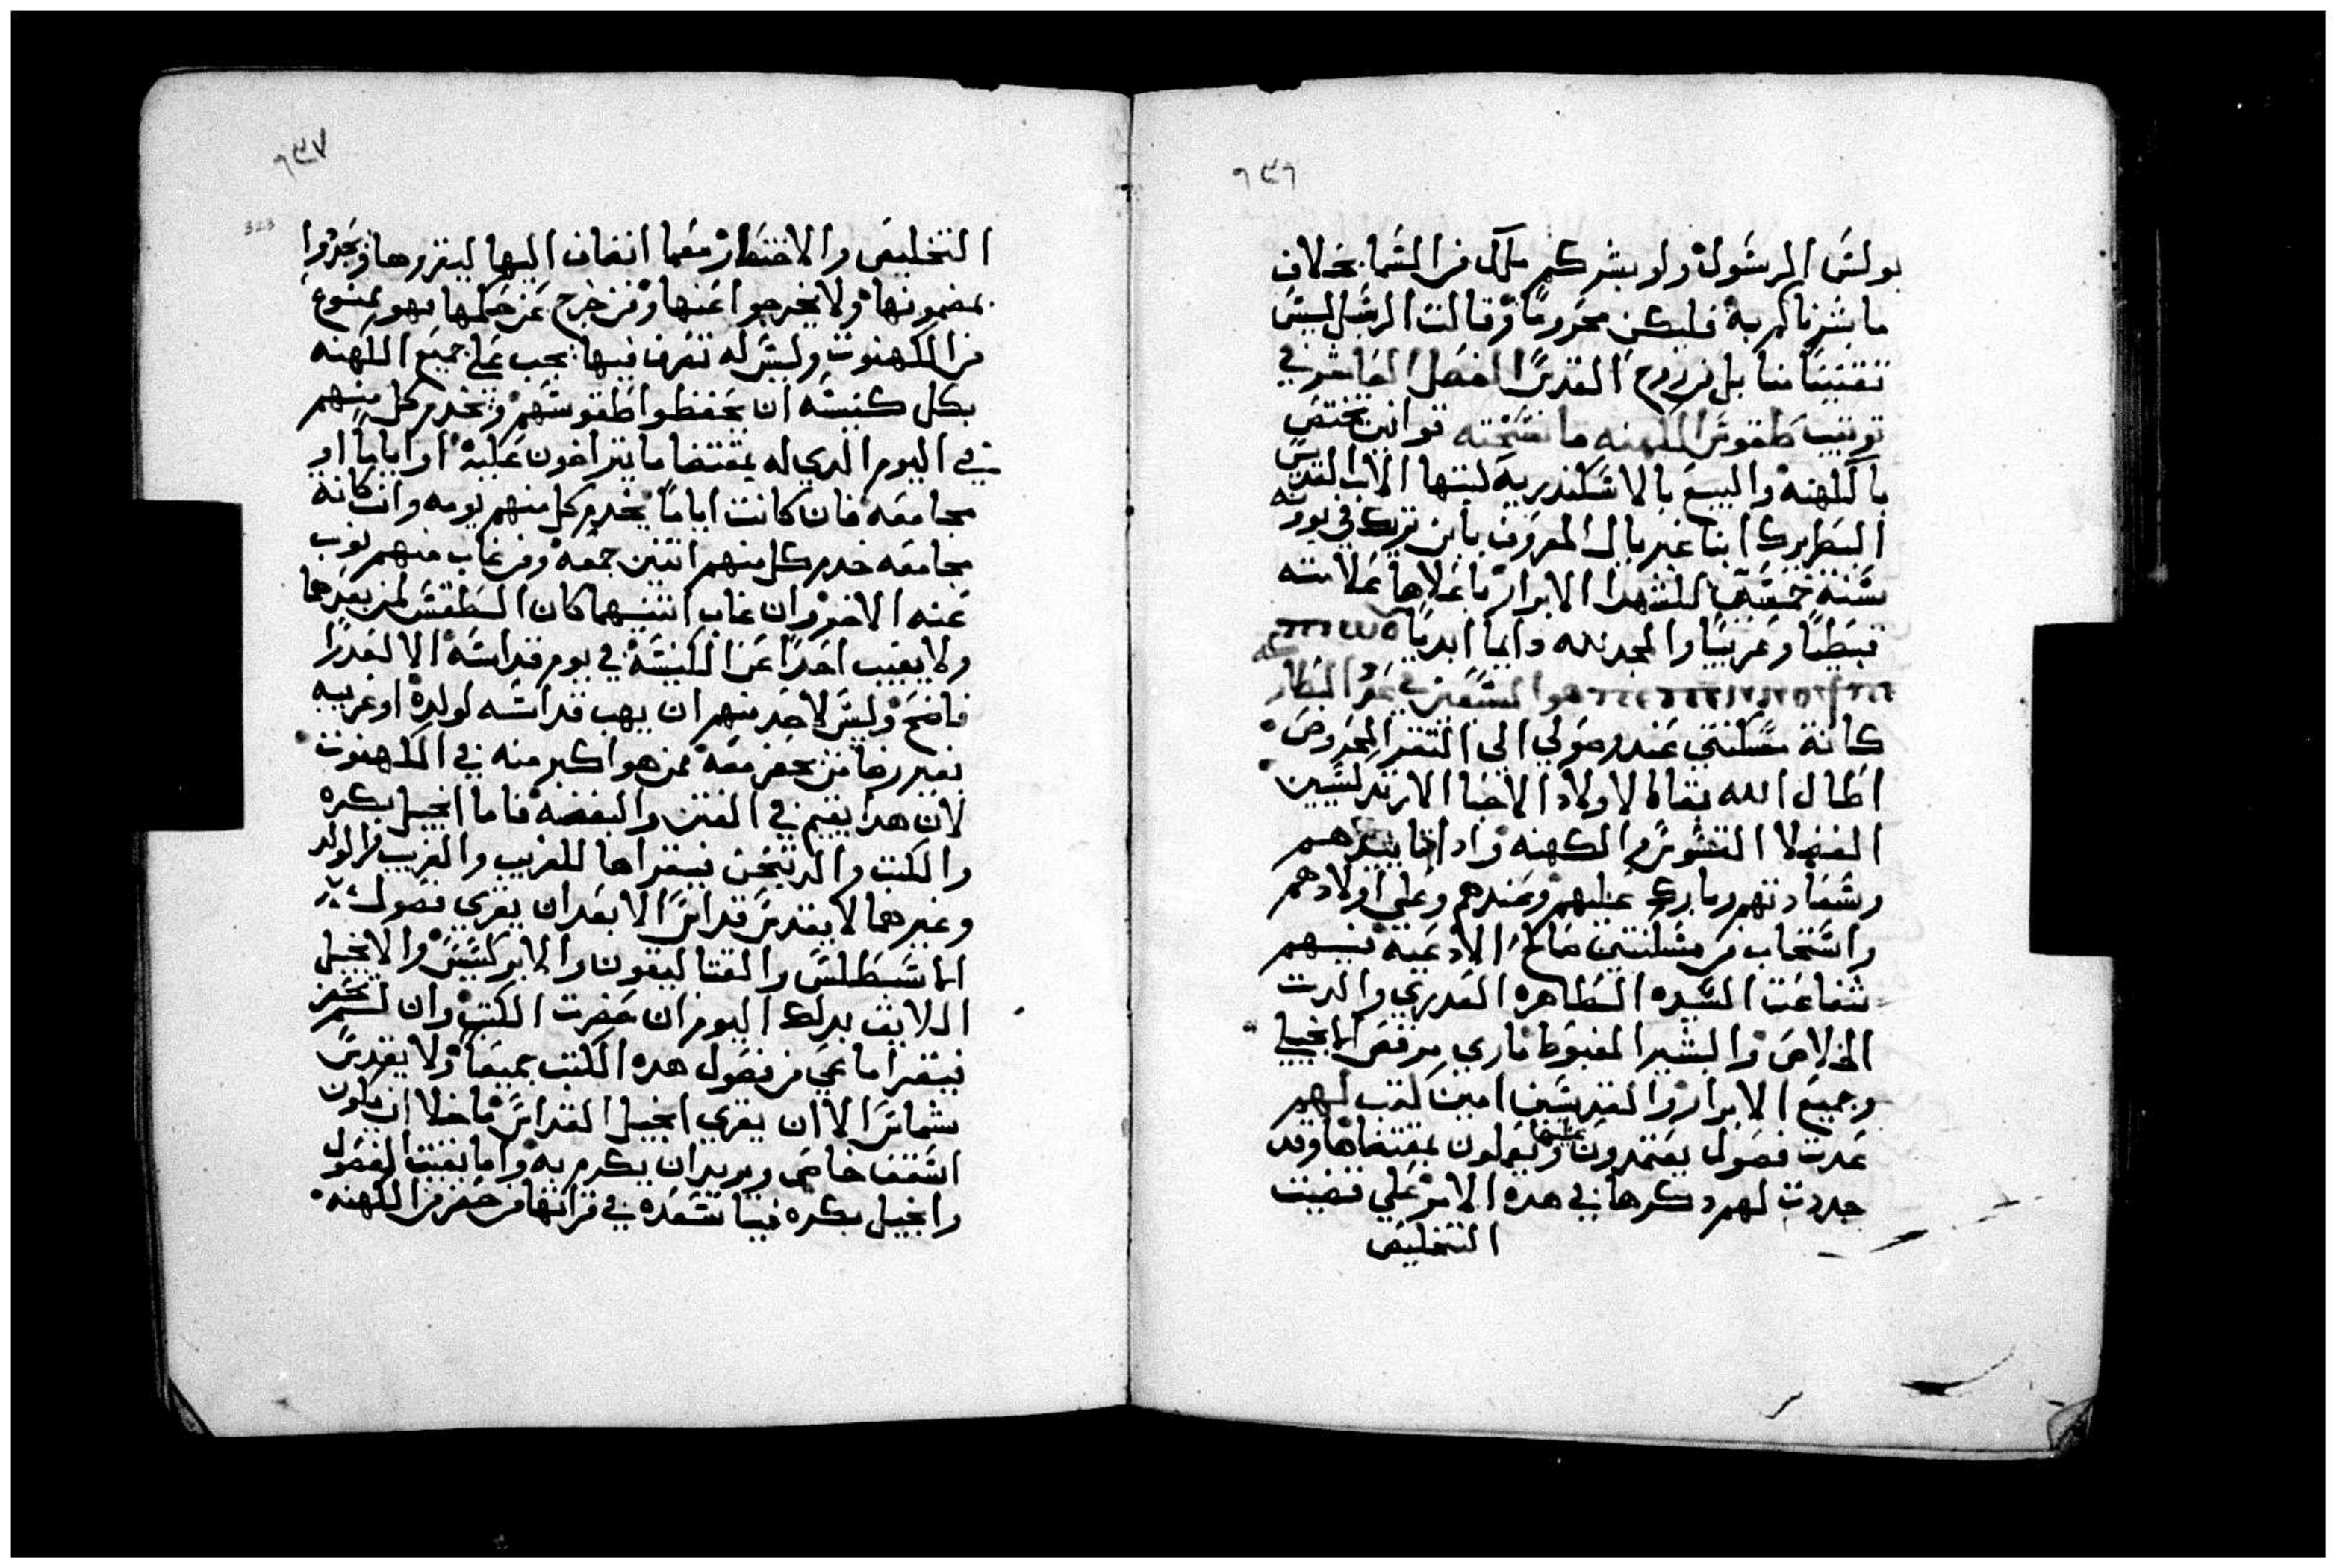 ٦٣٦
بولس الرسول ولو بشركم ملاك من السما بخلاف
ما بشرناكم به فليكن محروما وقالت الرسل ليس
تقنيننا منا بل من روح القدس الفصل العاشر في
ترتيب طقوس الكهنه ما نسخته قوانين تختص
بالكهنه والبيع بالاسكندريه كتبها الاب القديس
البطريرك انبا غبريال المعروف بابن تريك في يوونه
سنة للشهدا الابرار باعلاها علامته
قبطيا وعربيا والمجد لله دايما ابديا
هو الشبعين في عدد البطاركه
كانة مسكنتي عند وصولي الى الثغر المحروس
اطال الله بقاه الاولاد الاحبا الارتدكسيين
الفضلا القسوس والكهنه وادام
وسعادتهم وبارك عليهم وعندهم وعلي اولادهم
واستجاب من مسكنتي صالح الادعيه فيهم
شفاعت السيده الطاهره العدري والدت
الخلاص والبشير المغبوط ماري مرقص الانجيلي
وجميع الابرار والقديسين امين كتب لهم
عدت فصول يعتمدون عليها ويعملون بمقتضاها وقد
جددت لهم دكرها في هده الامر علي قضيت
التخليص
٦٣٧
323
التخليص والاختصار مع ما انضاف اليها ليقروها ويجروا
بمضمونها ولا يخرجوا عنها ومن خرج عن حكمها فهو ممنوع
من الكهنوت وليس له تصرف فيها يجب علي جميع الكهنه
بكل كنيسه ان يحفظوا طقوسهم ويخدم كل منهم
في اليوم الدي له بمقتضا ما يتراضون عليه اما اياما او
مجامعه فان كانت اياما يخدم كل منهم يومه وان كانة
مجامعه خدم كل منهم اتنين جمعه ومن غاب منهم نوب
عنه الاخر وان غاب اتنينهما كان الطقس لمن بعدهما
ولا يغيب احدا عن الكنيسه في يوم قداسه الا لعدرا
فاضح وليس لاحد منهم ان يهب قداسه لولده او غريبه
بغير رضا من يحضر معه ممن هو اكبر منه في الكهنوت
لان هدا يقيم في الفتن والبغضه فاما انجيل بكره
والكتب والدتيخن فيقراها للغريب والقريب والولد
وغيرهما لا يقدس قداس الا بعد ان يقري فصول
ابا سطلس والقتاليقون والابركسيس والانجيل
اللايق بدلك اليوم ان حضرت الكتب وان لم تحضر
فيقرا ما عي من فصول هده الكتب جميعا ولا يقدس
شماس الا ان يقري انجيل القداس ما خلا ان يكون
اسقف حاضر ويريد ان يكرم به واما بقيت الفصول
وانجيل بكره فيساعده في قراتها من حضر من الكهنه